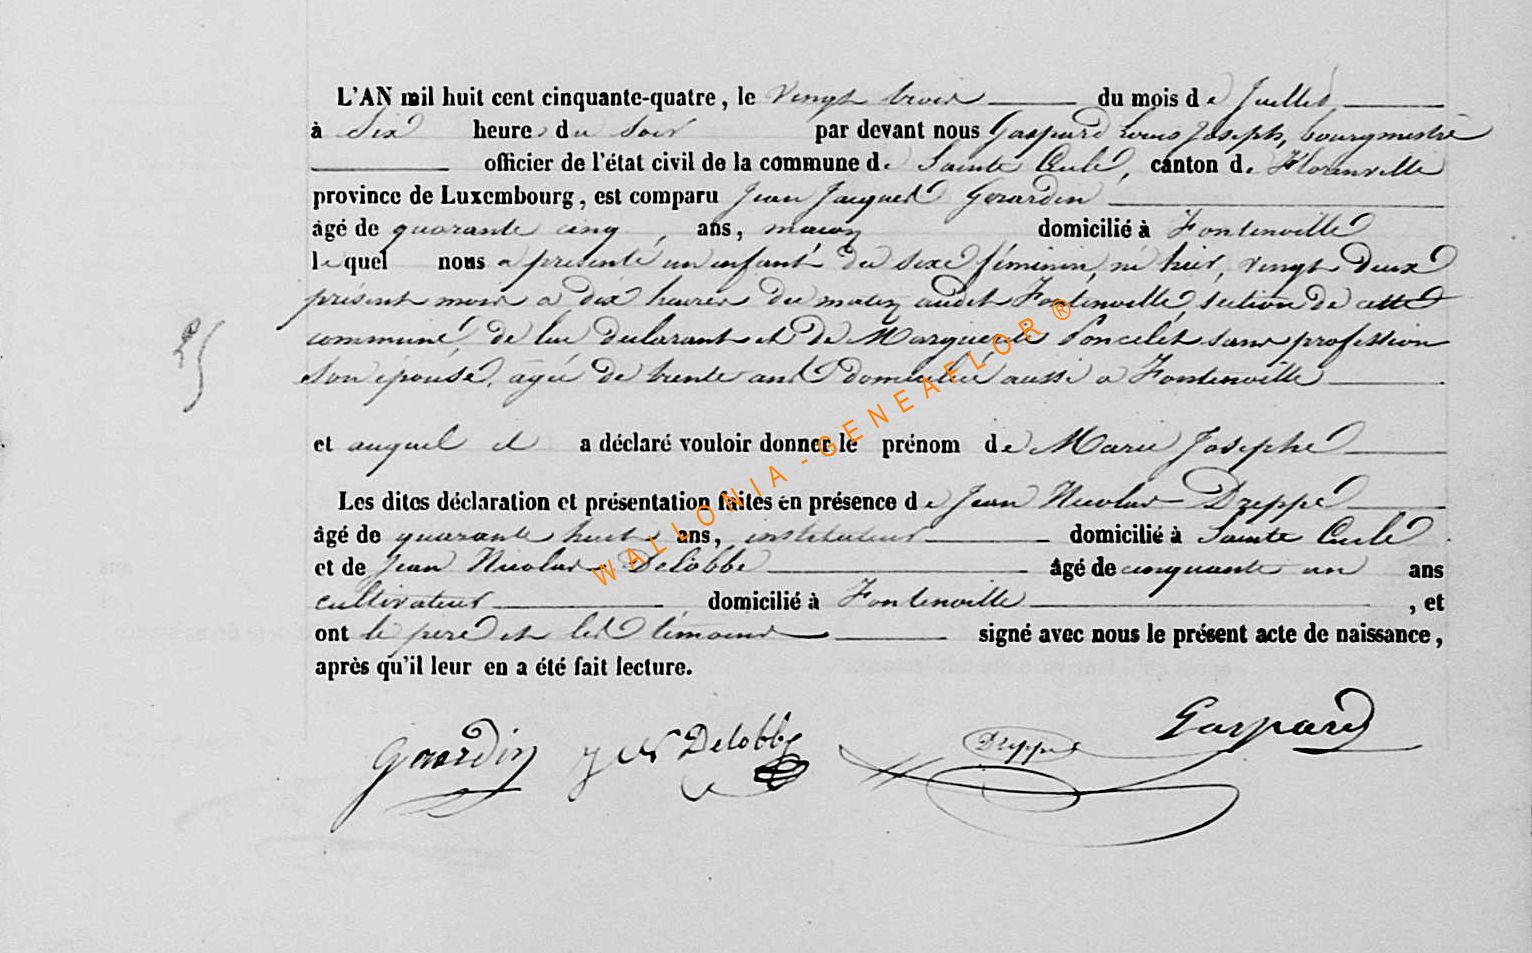 L'AN mil huit cent cinquante-quatre, le vingt trois du mois de Juillet
à Six heures du Soir par devant nous Gaspard Louis Joseph, bourgmestre
officier de l'état civil de la commune de Sainte Cecile, canton de Florenville
province de Luxembourg, est comparu Jean Jacques Gerardin
âgé de quarante cinq ans, maçon domicilié à Fontenoille
lequel nous a présenté un enfant du sexe féminin, né hier, vingt deux
présent mois a dix heures du matin audit Fontenoille, section de cette
commune de lui declarant et de Marguerite Poncelet sans profession
son épouse, agée de trente ans domiciliée aussi a Fontenoille
et auquel il a déclaré vouloir donner le prénom de Marie Josephe
Les dites déclaration et présentation faites en présence de Jean Nicolas Dreppe
âgé de quarante huit ans, instituteur domicilié à Sainte Cecile
et de Jean Nicolas Delobbe âgé de cinquante un ans
cultivateur domicilié à Fontenoille, et
ont le pere et les témoins signé avec nous le présent acte de naissance,
après qu'il leur en a été fait lecture.
Gerardin J N Delobbe Dreppe Gaspard
WALLONIA-GENEAFLOR ®